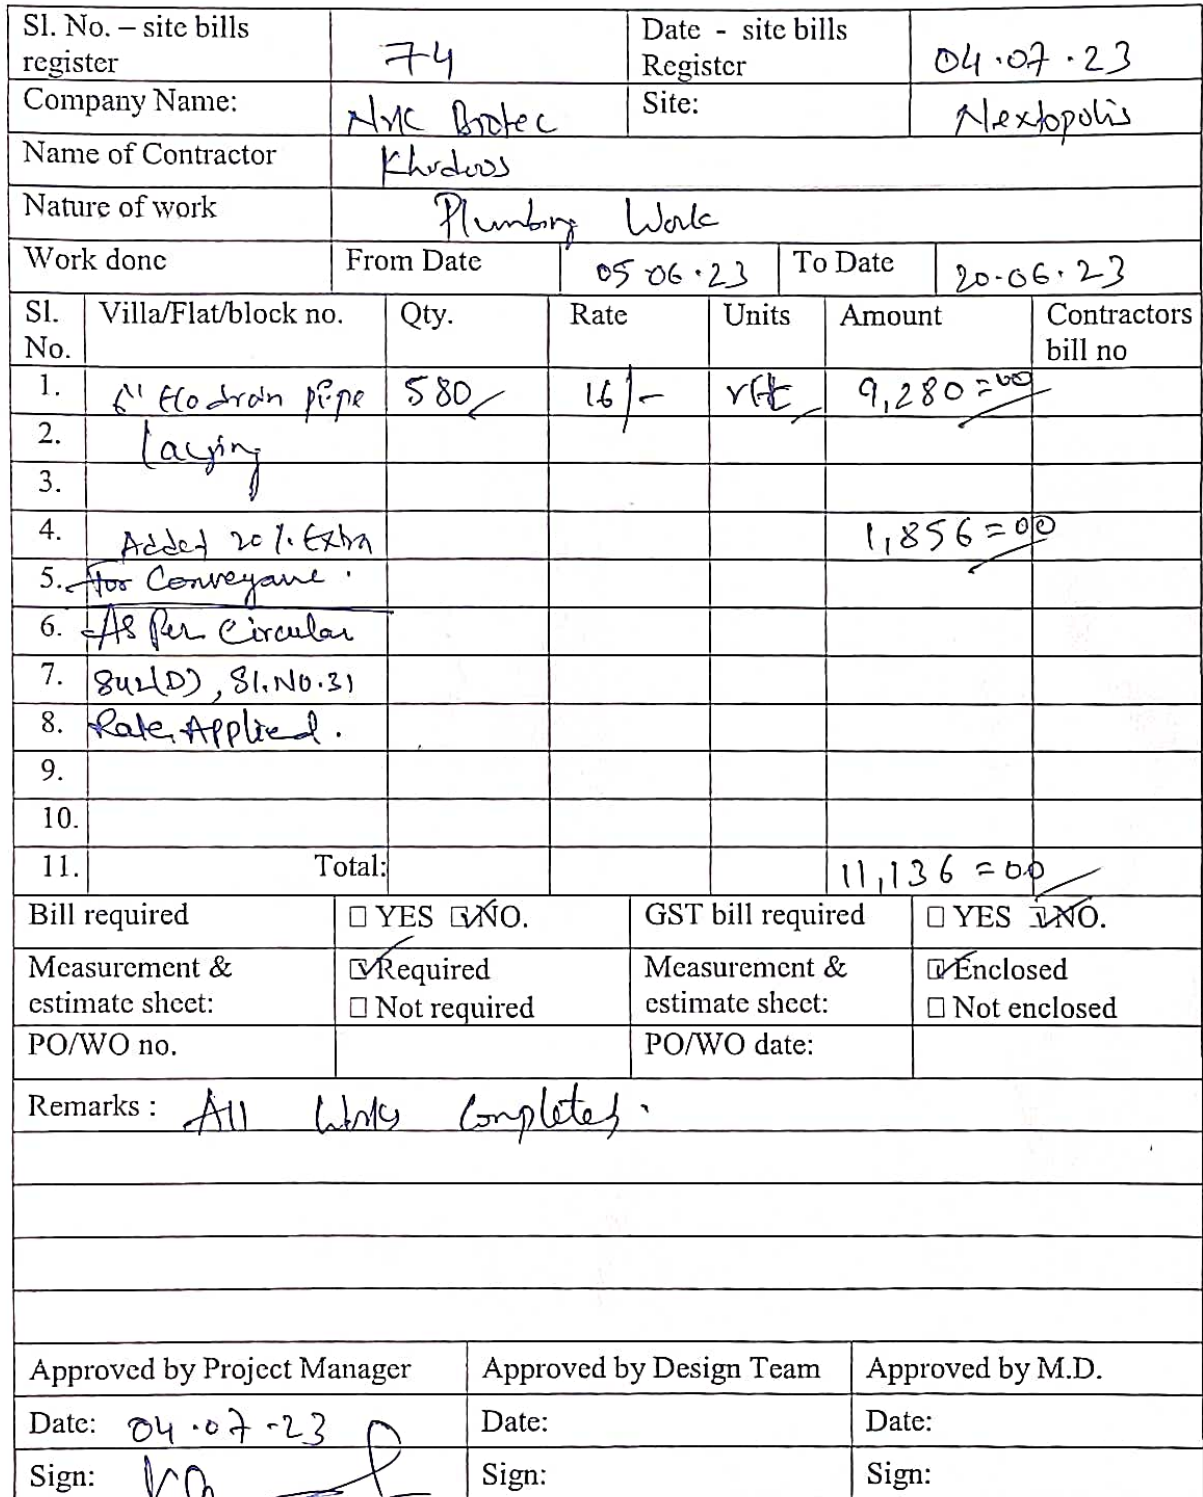 Sl. No. – site bills register 74 Date - site bills Register 04.07.23
Company Name: NMC Biotec Site: Nextopolis
Name of Contractor Khudoos
Nature of work Plumbing Work
Work done From Date 05 06.23 To Date 20-06.23
Sl. No. Villa/Flat/block no. Qty. Rate Units Amount Contractors bill no
1. 6" pipe 580 16/- rft 9,280=00
2. Laying
3.
4. Added 20%. Extra 1,856=00
5. for Conveyane.
6. As Per Circular
7. (D), Sl.No.31
8. Rate Applied.
9.
10.
11. Total: 11,136=00
Bill required ☐ YES ☑ NO. GST bill required ☐ YES ☑ NO.
Measurement & estimate sheet: ☑ Required Measurement & estimate sheet: ☑ Enclosed
☐ Not required ☐ Not enclosed
PO/WO no. PO/WO date:
Remarks : All Works Completed.
Approved by Project Manager Approved by Design Team Approved by M.D.
Date: 04.07-23 Date: Date:
Sign: Sign: Sign: